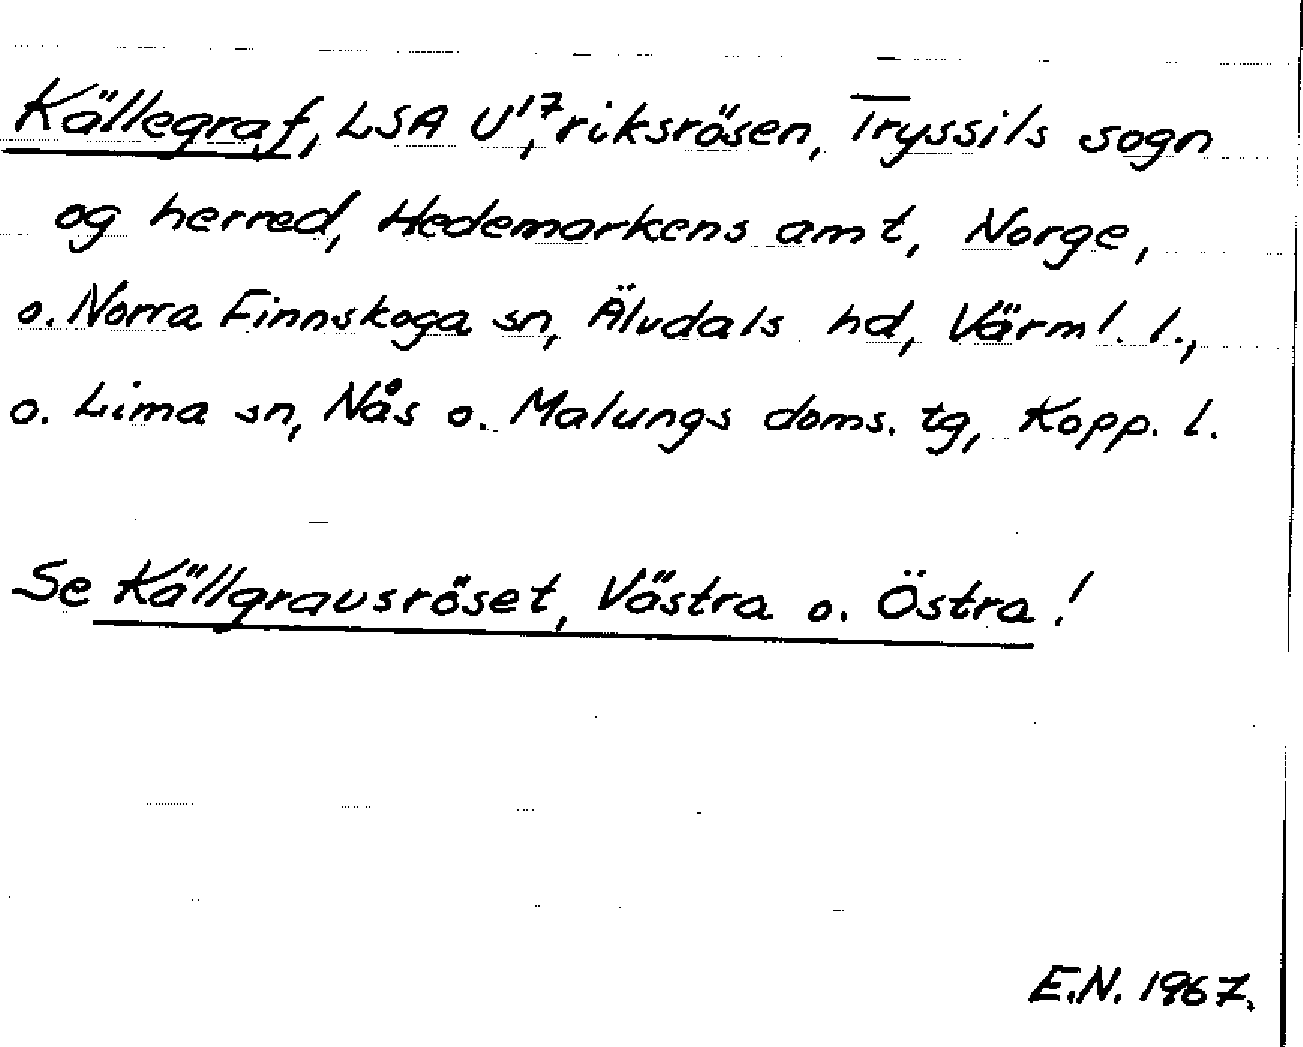 Källegraf, LSA U¹⁷, riksrösen, Tryssils sogn
og herred, Hedemarkens amt, Norge,
o. Norra Finnskoga sn, Älvdals hd, Värml. l.,
o. Lima sn, Nås o. Malungs doms. tg, Kopp. l.
Se Källgravsröset, Västra o. Östra!
E.N. 1967.